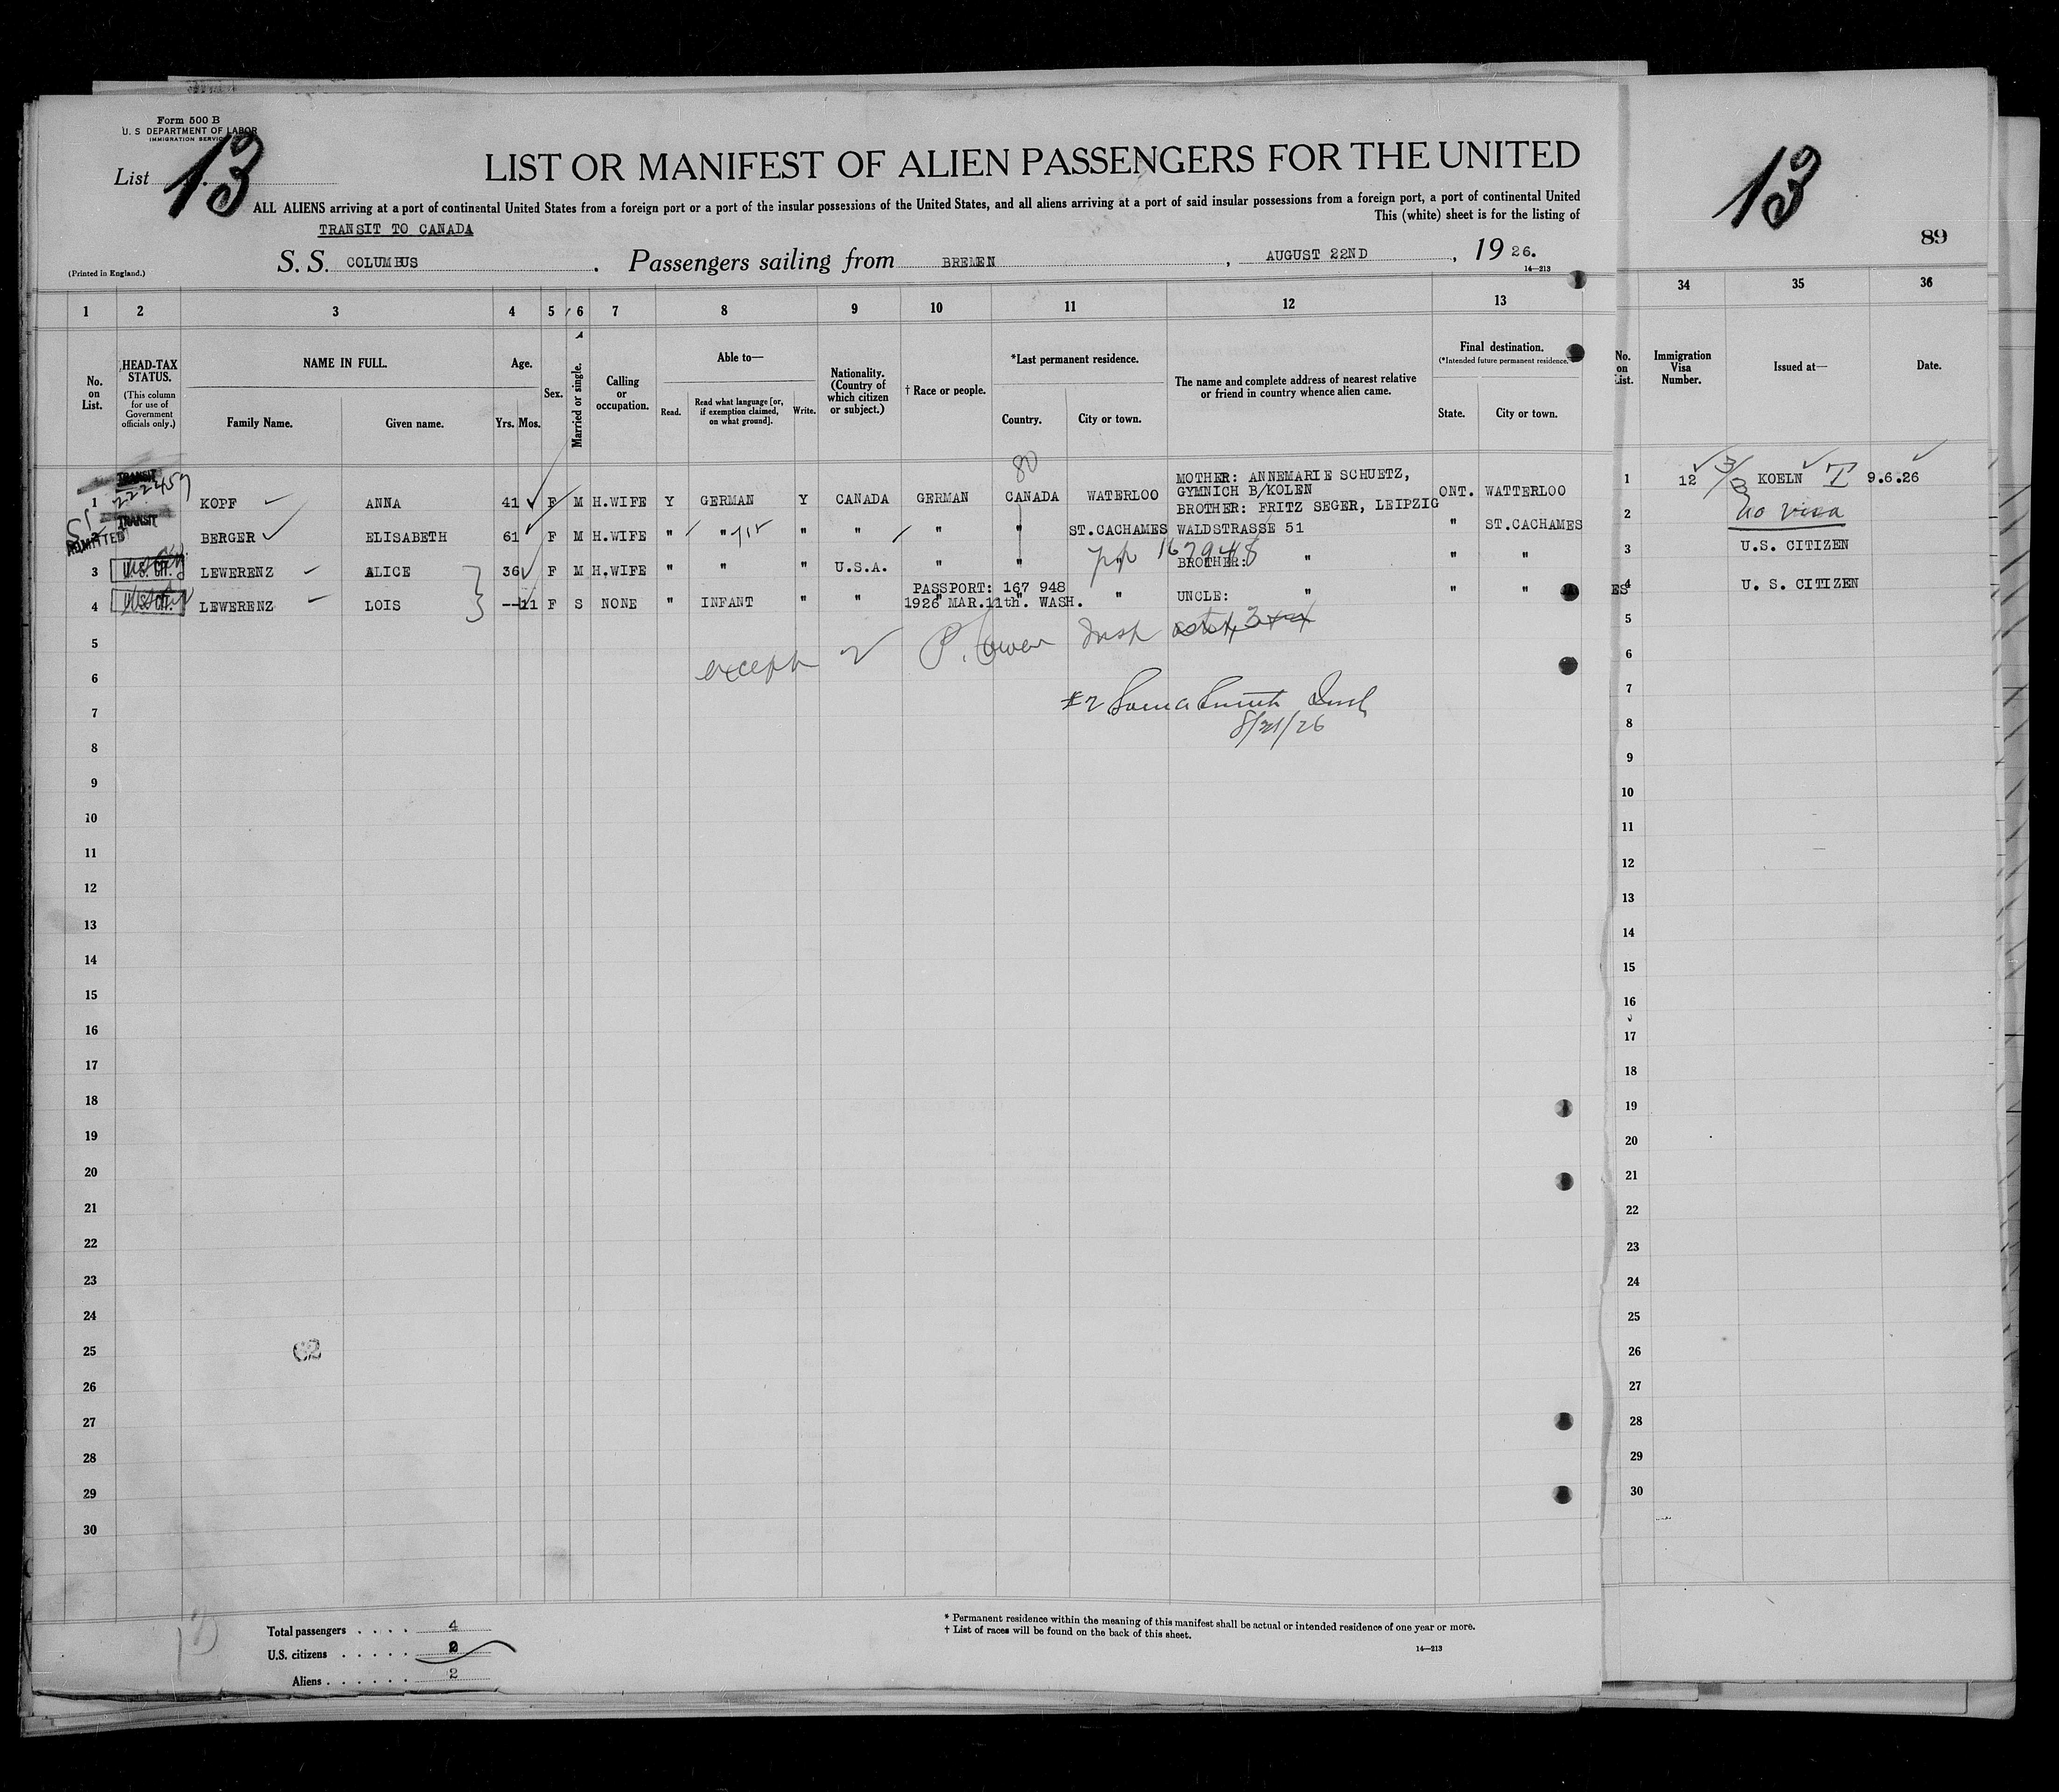 Form 500 B
U. S DEPARTMENT OF LABOR
IMMIGRATION SERVICE
List 13
LIST OR MANIFEST OF ALIEN PASSENGERS FOR THE UNITED
ALL ALIENS arriving at a port of continental United States from a foreign port or a port of the insular possessions of the United States, and all aliens arriving at a port of said insular possessions from a foreign port, a port of continental United
This (white) sheet is for the listing of
TRANSIT TO CANADA
S. S. COLUMBUS . Passengers sailing from BREMEN , AUGUST 22ND , 19 26.
(Printed in England.)
14—213
13
89
1 2 3 4 5 6 7 8 9 10 11 12 13
34 35 36
No. on List.
HEAD-TAX STATUS.
(This column for use of Government officials only.)
NAME IN FULL.
Family Name.
Given name.
Age.
Yrs. Mos.
Sex.
Married or single.
Calling or occupation.
Able to—
Read.
Read what language [or, if exemption claimed, on what ground].
Write.
Nationality. (Country of which citizen or subject.)
† Race or people.
*Last permanent residence.
Country.
City or town.
The name and complete address of nearest relative or friend in country whence alien came.
Final destination.
(*Intended future permanent residence.
State.
City or town.
No. on List.
Immigration Visa Number.
Issued at—
Date.
80
TRANSIT
222459
MOTHER: ANNEMARIE SCHUETZ,
1 KOPF ANNA 41 F M H.WIFE Y GERMAN Y CANADA GERMAN CANADA WATERLOO GYMNICH B/KOLEN ONT. WATTERLOO
TRANSIT
BROTHER: FRITZ SEGER, LEIPZIG
ADMITTED
BERGER ELISABETH 61 F M H.WIFE " " " " " " ST.CACHAMES WALDSTRASSE 51 " ST.CACHAMES
pp 167948
3 U.S. CIT. LEWERENZ ALICE 36 F M H.WIFE " " " U.S.A. " " BROTHER: " " "
PASSPORT: 167 948
4 U.S. CIT. LEWERENZ LOIS -- 11 F S NONE " INFANT " " " " " UNCLE: " " "
1926 MAR.11th. WASH.
except 2
#2
8/31/26
5
6
7
8
9
10
11
12
13
14
15
16
17
18
19
20
21
22
23
24
25
26
27
28
29
30
62
1 12 KOELN 9.6.26
2 No visa
3 U.S. CITIZEN
ES 4 U. S. CITIZEN
5
6
7
8
9
10
11
12
13
14
15
16
17
18
19
20
21
22
23
24
25
26
27
28
29
30
Total passengers . . . . 4
U.S. citizens . . . . . 2
Aliens . . . . . . 2
* Permanent residence within the meaning of this manifest shall be actual or intended residence of one year or more.
† List of races will be found on the back of this sheet.
14—213